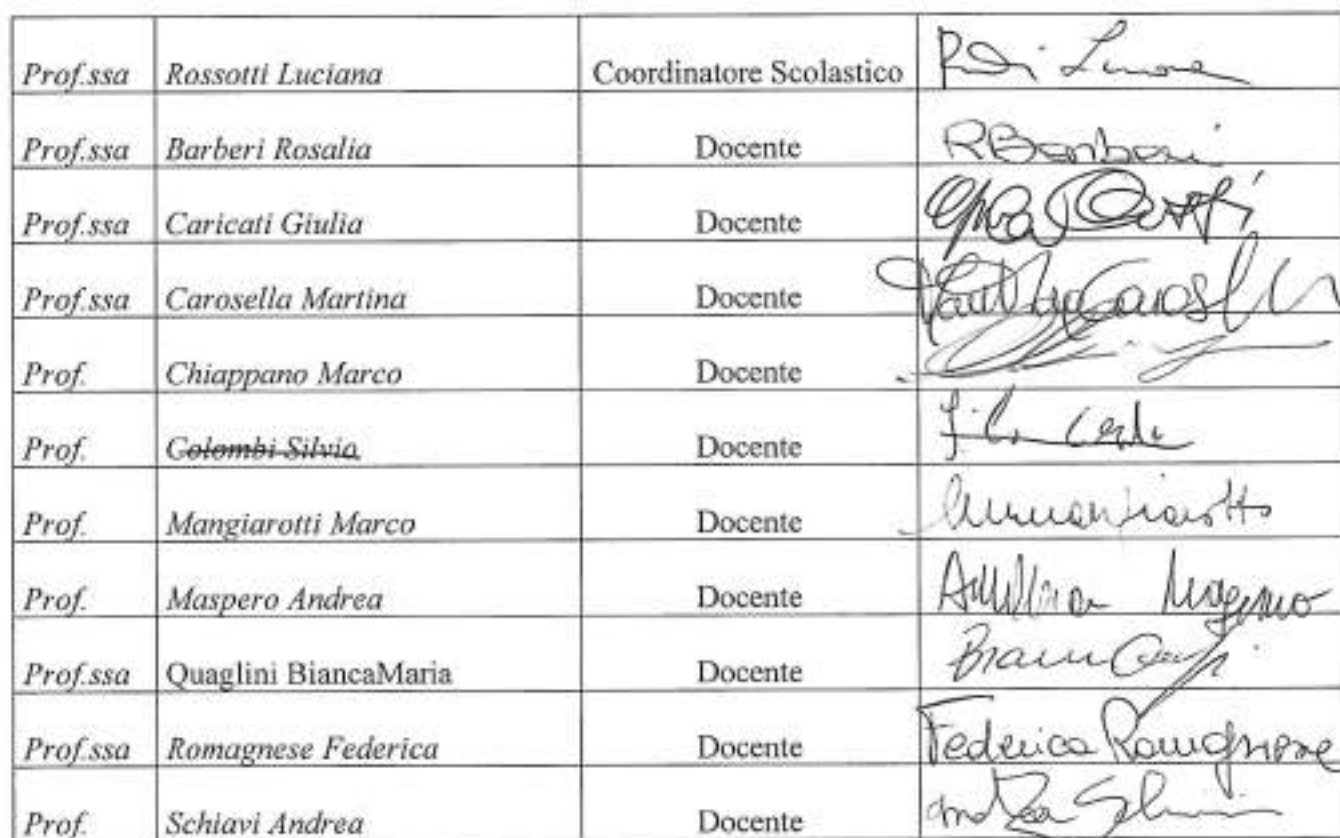 Prof.ssa Rossotti Luciana Coordinatore Scolastico
Prof.ssa Barberi Rosalia Docente R Barberi
Prof.ssa Caricati Giulia Docente
Prof.ssa Carosella Martina Docente
Prof. Chiappano Marco Docente
Prof. Colombi Silvio Docente
Prof. Mangiarotti Marco Docente
Prof. Maspero Andrea Docente Andrea Maspero
Prof.ssa Quaglini BiancaMaria Docente
Prof.ssa Romagnese Federica Docente Federica Romagnese
Prof. Schiavi Andrea Docente Andrea Schiavi